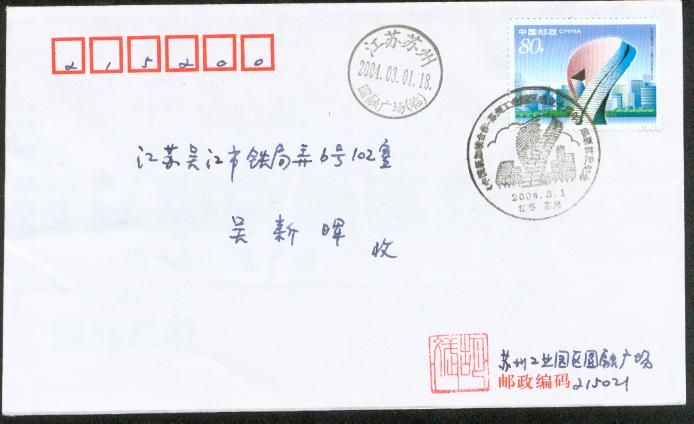 215200
中国邮政 CHINA
80分
江苏·苏州
2004.03.01.18
圆融广场(临)
2004.3.1
江苏 苏州
江苏吴江市铁局弄6号102室
吴新晖 收
苏州工业园区圆融广场
邮政编码 215021